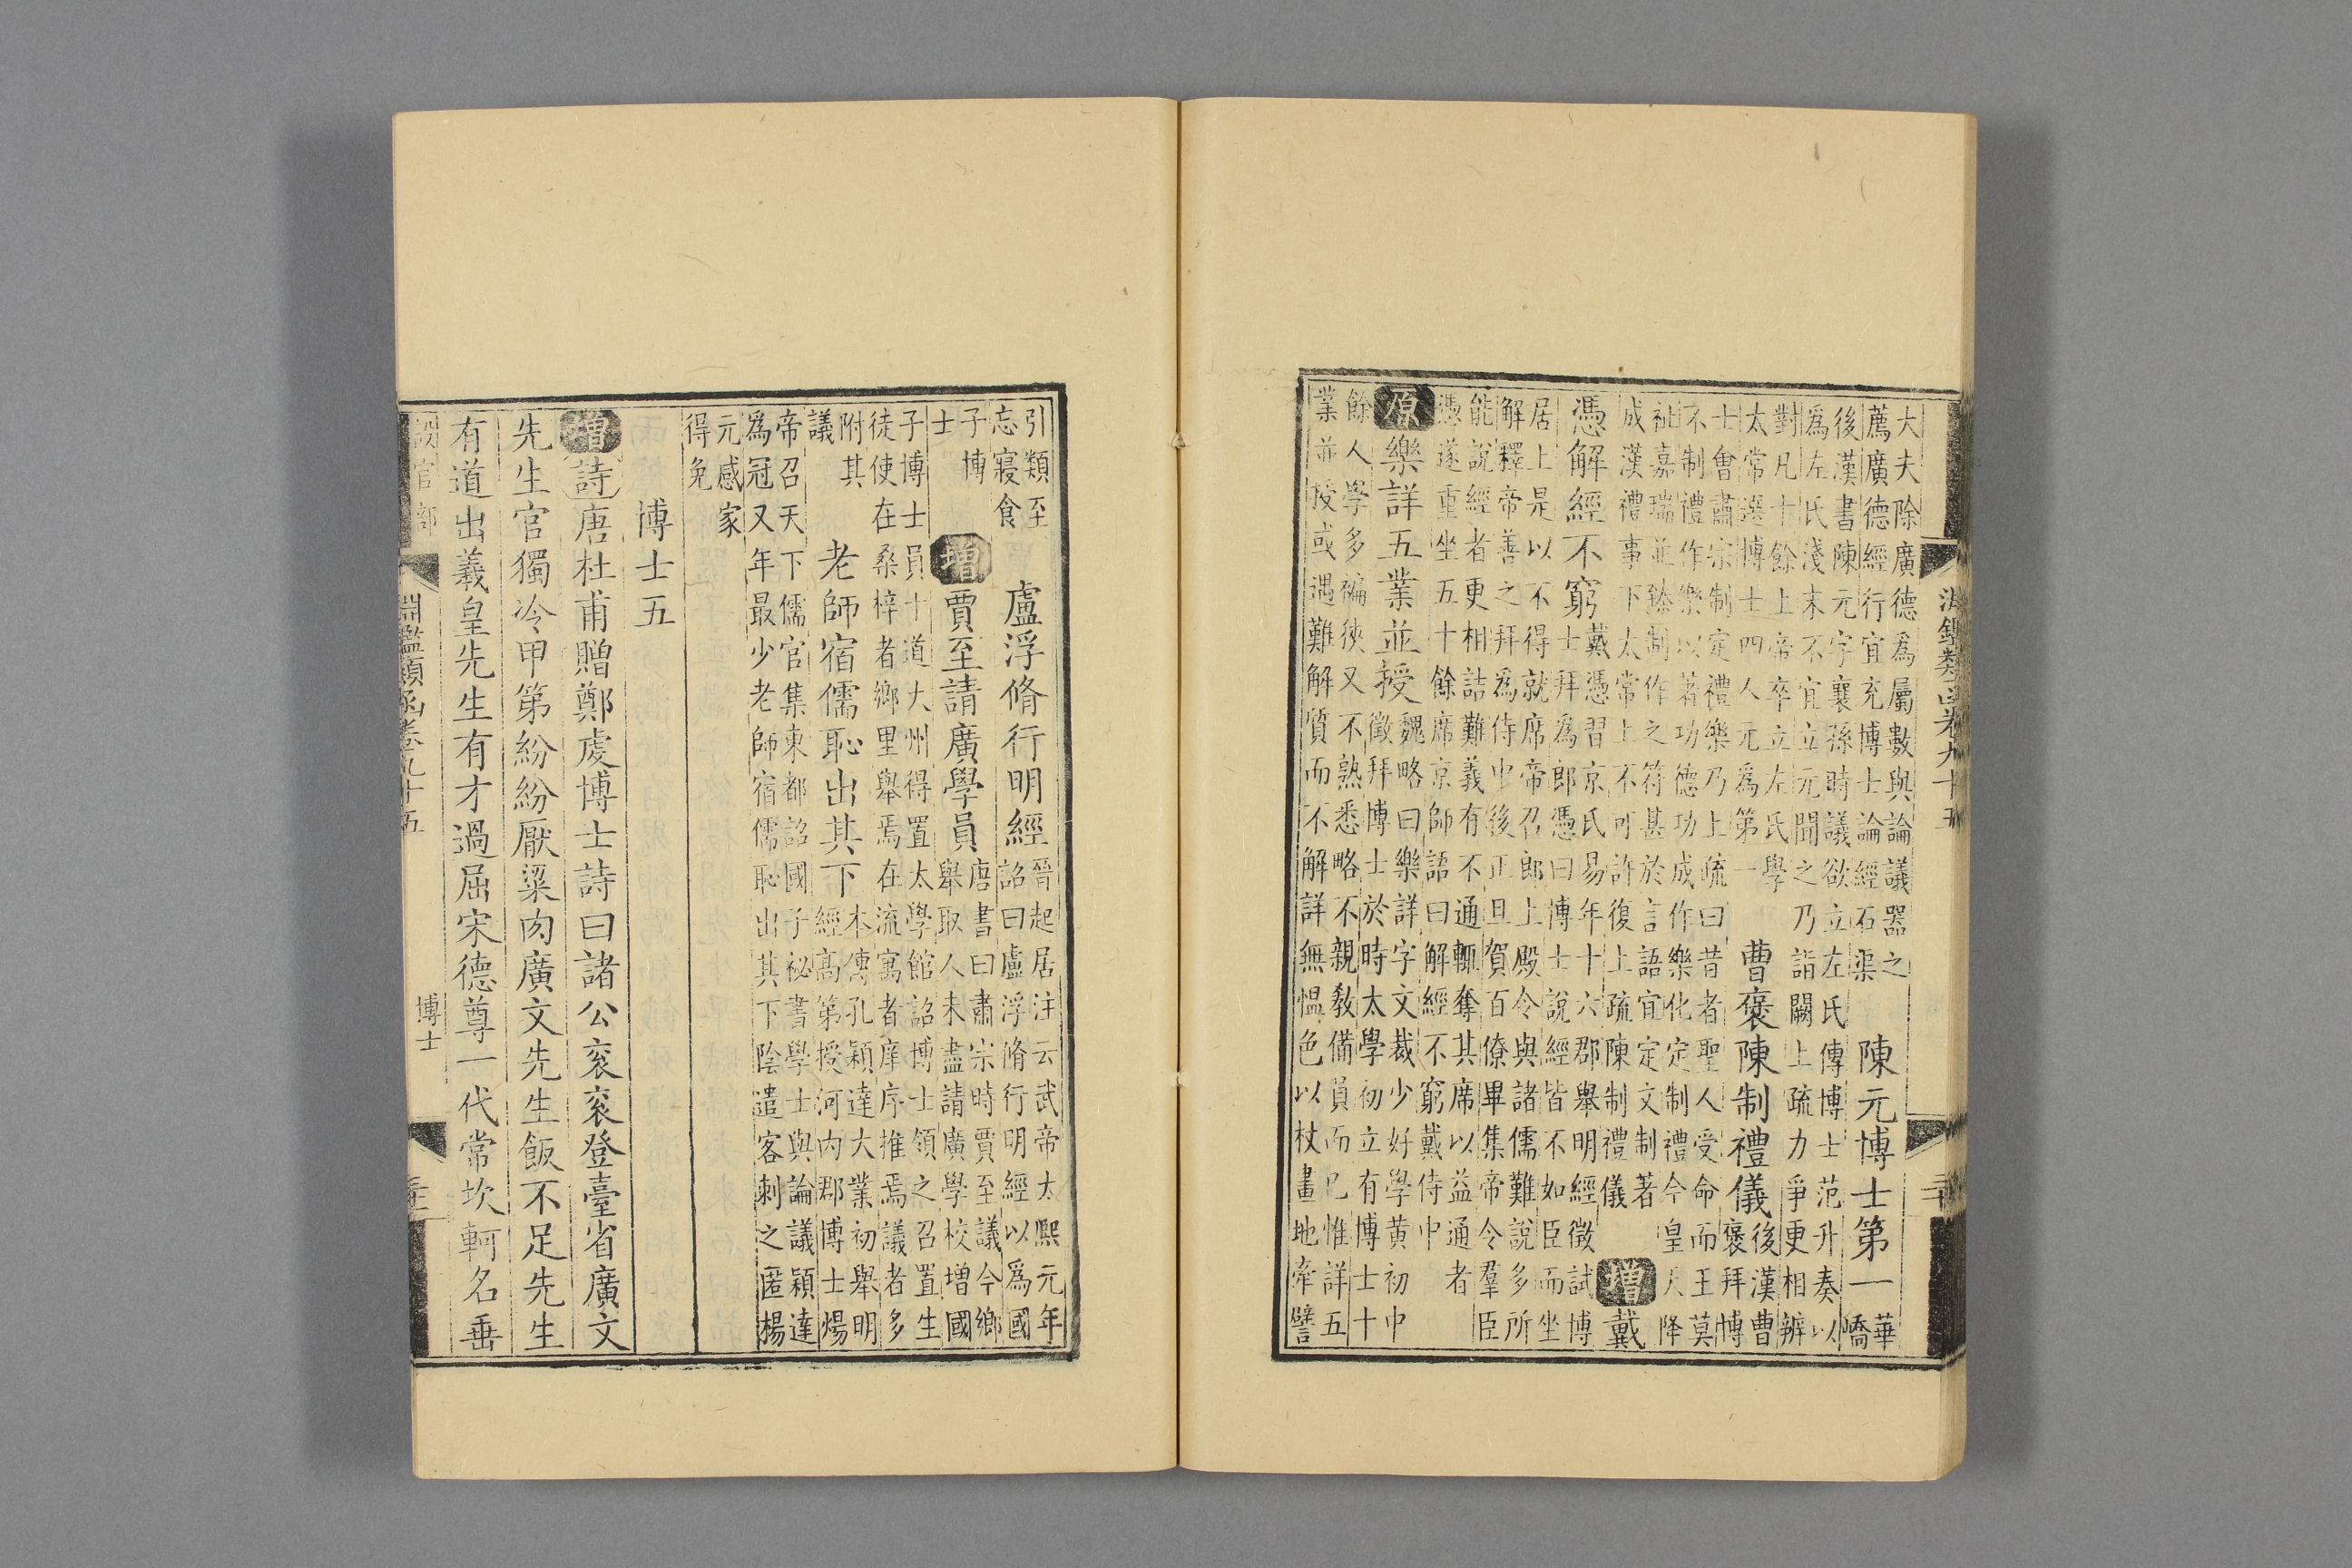 淵鑑類函卷九十五
大夫除廣德爲屬數與論議器之
薦廣德經行宜充博士論經石渠
陳元博士第一
華
嶠
後漢書陳元字襄孫時議欲立左氏傳博士范升奏以
爲左氏淺末不宜立元聞之乃詣闕上疏力爭更相辨
對凡十餘上帝卒立左氏學
太常選博士四人元爲第一
曹褒陳制禮儀
後漢曹
褒拜博
士會肅宗制定禮樂乃上疏曰昔者聖人受命而王莫
不制禮作樂以著功德功成作樂化定制禮今皇天降
祉嘉瑞並臻制作之符甚於言語宜定文制著
成漢禮事下太常上不可許復上疏陳制禮儀
增戴
憑解經不窮
戴憑習京氏易年十六郡舉明經徵試博
士拜爲郎憑曰博士說經皆不如臣而坐
居上是以不得就席帝召郎上殿令與諸儒難說多所
解釋帝善之拜爲侍中後正旦賀百僚畢集帝令羣臣
能說經者更相詰難義有不通輒奪其席以益通者
憑遂重坐五十餘席京師語曰解經不窮戴侍中
原樂詳五業並授
魏略曰樂詳字文裁少好學黄初中
徵拜博士於時太學初立有博士十
餘人學多褊狹又不熟悉略不親教備員而已惟詳五
業並授或遇難解質而不解詳無慍色以杖畫地牽譬
引類至
忘寢食
盧浮脩行明經
晉起居注云武帝太熙元年
詔曰盧浮脩行明經以爲國
子博
士
增賈至請廣學員
唐書曰肅宗時賈至議今鄉
舉取人未盡請廣學校增國
子博士員十道大州得置太學館詔博士領之召置生
徒使在桑梓者鄉里舉焉在流寓者庠序推焉議者多
附其
議
老師宿儒恥出其下
本傳孔穎達大業初舉明
經高第授河内郡博士煬
帝召天下儒官集東都詔國子祕書學士與論議穎達
爲冠又年最少老師宿儒恥出其下陰遣客刺之匿楊
元感家
得免
博士五
增詩唐杜甫贈鄭虔博士詩曰諸公衮衮登臺省廣文
先生官獨冷甲第紛紛厭粱肉廣文先生飯不足先生
有道出羲皇先生有才過屈宋德尊一代常坎軻名垂
設官部
淵鑑類函卷九十五
博士